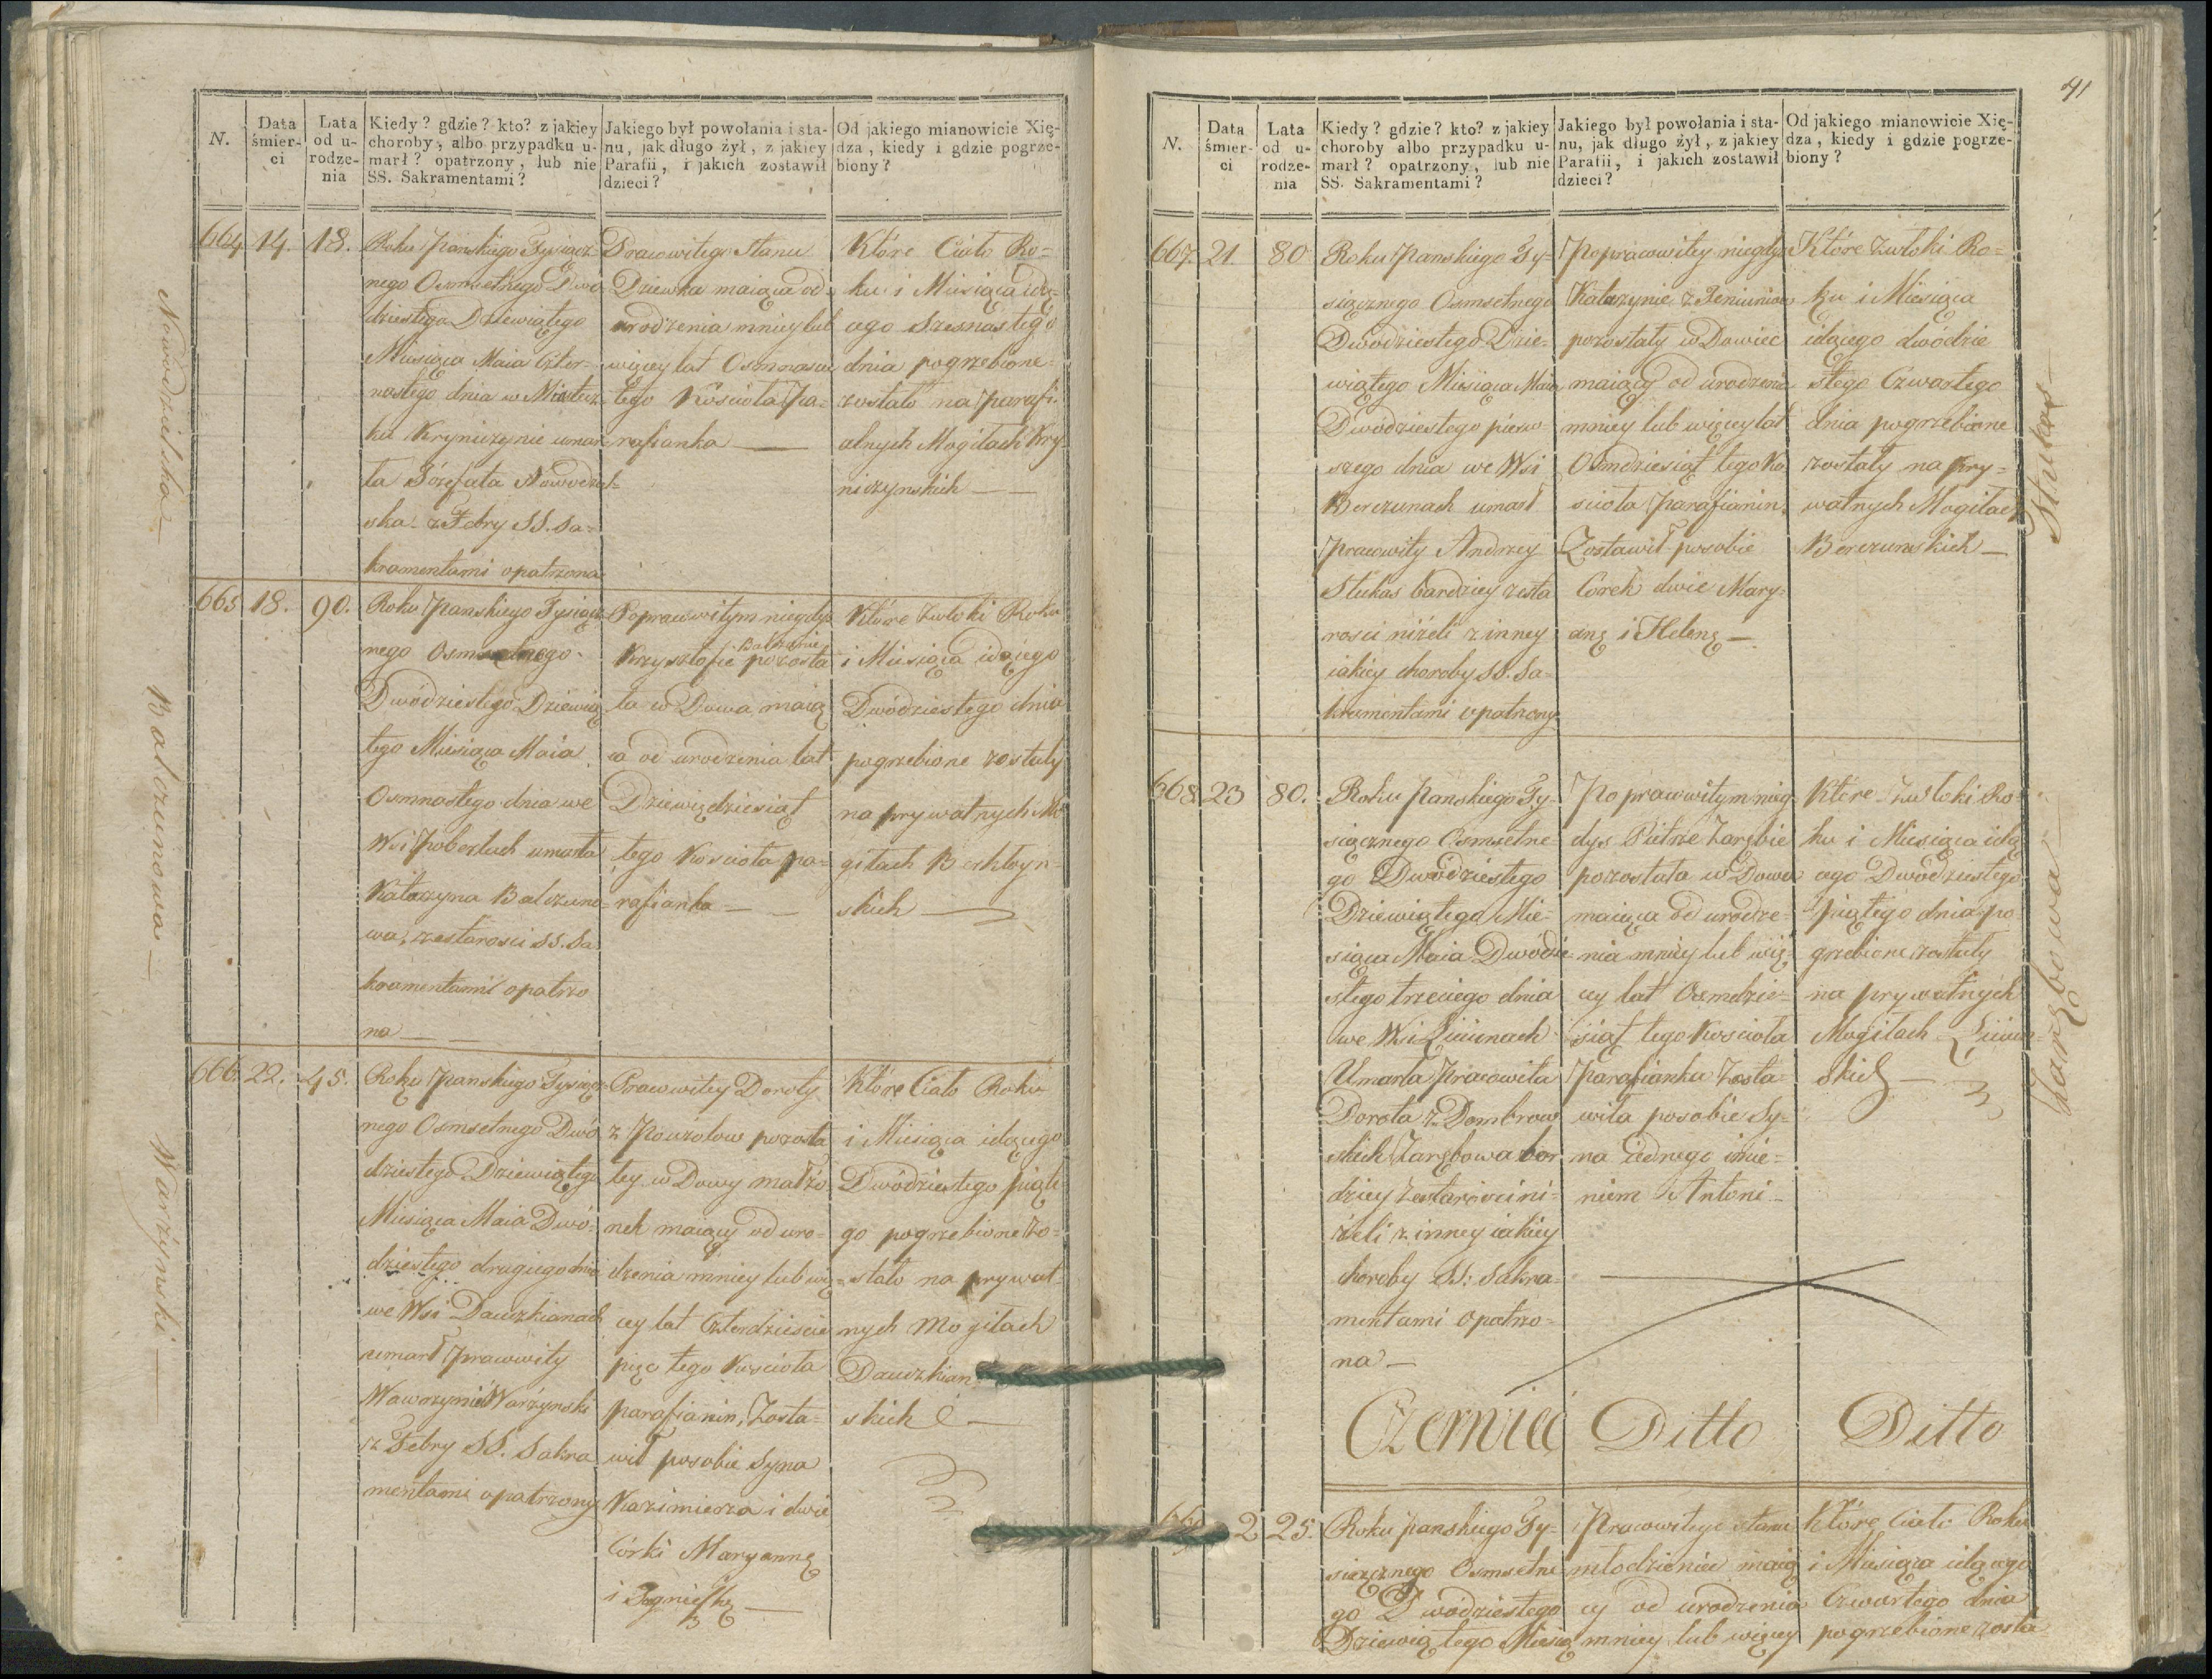 N.
Data śmier-
ci
Lata
od u-
rodze-
nia
Kiedy? gdzie? kto? z jakiey
choroby, albo przypadku u-
marł? opatrzony, lub nie
SS. Sakramentami?
Jakiego był powołania i sta-
nu, jak długo żył, z jakiey
Parafii, i jakich zostawił
dzieci?
Od jakiego mianowicie Xię-
dza, kiedy i gdzie pogrze-
biony?
664
14.
18.
Roku Panskiego Tysiącz-
nego Osmsetnego Dwo-
dziestego Dziewiątego
Miesiąca Maia Czter-
nastego dnia w Miastecz-
ku Krynicznie umar-
ła Józefata Nowodzel-
ska z Febry SS. Sa-
kramentami opatrzona
Pracowitego Stanu
Dziewka maiąca od u-
rodzenia mniey lub
więcey lat Osmnascie
tego Kościoła Pa-
rafianka —
Które Ciało Ro-
ku i Miesiąca idą-
cego Szesnastego
dnia pogrzebione
zostało na Parafi-
alnych Mogiłach Kry-
niczynskich —
Nowodzielska —
665
18.
90.
Roku Panskiego Tysiącz-
nego Osmsetnego
Dwódziestego Dziewią
tego Miesiąca Maia
Osmnastego dnia we
Wsi Poberłach umarła
Katarzyna Balczuno-
wa, z starosci SS. Sa
kramentami opatrzo
na —
Po pracowitym niegdys
Krzysztofie Balczunie pozosta
ła w Dowa, maią
ca od urodzenia lat
Dziewiędziesiąt
tego Kosciola pa-
rafianka —
Które zwłoki Roku
i Miesiąca idącego
Dwódziestego dnia
pogrzebione zostały
na prywatnych Mo
giłach Berkłoyn-
skich —
Balczunowa —
666.
22.
45.
Roku Panskiego Tysiącz-
nego Osmsetnego Dwó
dziestego Dziewiątego
Miesiąca Maia Dwó-
dziestego drugiego dnia
we Wsi Dauzkianach
umarł Pracowity
Wawrzyniec Warzynski
z Febry SS. Sakra
mentami opatrzony
Pracowitey Doroty
z pozosta
łey w Dowy małżo
nek maiący od uro-
dzenia mniey lub wię-
cey lat Czterdziescie
pięc tego Kosciola
parafianin, Zosta-
wił posobie Syna
Kazimierza i dwie
Córki Maryannę
i Jagnieszkę —
Które Ciało Roku
i Miesiąca idącego
Dwódziestego piąte
go pogrzebione zo-
stało na prywat-
nych Mogiłach
Dauzkian-
skich —
Warzynski —
41
N.
Data
śmier-
ci
Lata
od u-
rodze-
nia
Kiedy? gdzie? kto? z jakiey
choroby albo przypadku u-
marł? opatrzony, lub nie
SS. Sakramentami?
Jakiego był powołania i sta-
nu, jak długo żył, z jakiey
Parafii, i jakich zostawił
dzieci?
Od jakiego mianowicie Xię-
dza, kiedy i gdzie pogrze-
biony?
667
21
80
Roku Panskiego Ty-
siącznego Osmsetnego
Dwódziestego Dzie-
wiątego Miesiąca Maia
Dwódziestego pierw-
szego dnia we Wsi
Berczunach umarł
Pracowity Andrzey
Stukas bardziey z sta
rosci niżeli z inney
iakiey choroby SS. Sa-
kramentami opatrzony
Po pracowitey niegdys
Katarzynie z
pozostały w Dowiec
maiący od urodzenia
mniey lub więcey lat
Osmdziesiąt tego Ko
sciola Parafianin,
Zostawił posobie
Corek dwie Mary-
anę i Helenę —
Które zwłoki Ro-
ku i Miesiąca
idącego dwódzie
stego Czwartego
dnia pogrzebione
zostały na pry-
watnych Mogiłach
Berczunskich —
Stukas —
668.
23
80.
Roku Panskiego Ty-
siącznego Osmsetne-
go Dwódziestego
Dziewiątego Mie-
siąca Maia Dwódzie-
stego trzeciego dnia
we Wsi
Umarła Pracowita
Dorota z Dombrow
skich Zarębowa bar
dziey z starosci ni-
żeli z inney iakiey
choroby SS. Sakra-
mentami opatrzo-
na —
Po pracowitym nieg-
dys Pietrze Zarębie
pozostała w Dowa
maiąca od urodze-
nia mniey lub wię-
cey lat Osmdzie-
siąt tego Kosciola
Parafianka Zosta-
wiła posobie Sy-
na iednego imie-
niem Antoni —
Które zwłoki Ro-
ku i Miesiąca idą
cego Dwódziestego
piątego dnia po-
grzebione zostały
na prywatnych
Mogiłach
skich —
Zarębowa —
Czerwiec
Ditto
Ditto
2
25.
Roku panskiego Ty-
siącznego Osmsetne
go Dwódziestego
Dziewiątego Miesią
Pracowitego stanu
młodzieniec maią
cy od urodzenia
mniey lub więcey
Które Ciało Roku
i Miesiąca idącego
Czwartego dnia
pogrzebione zosta